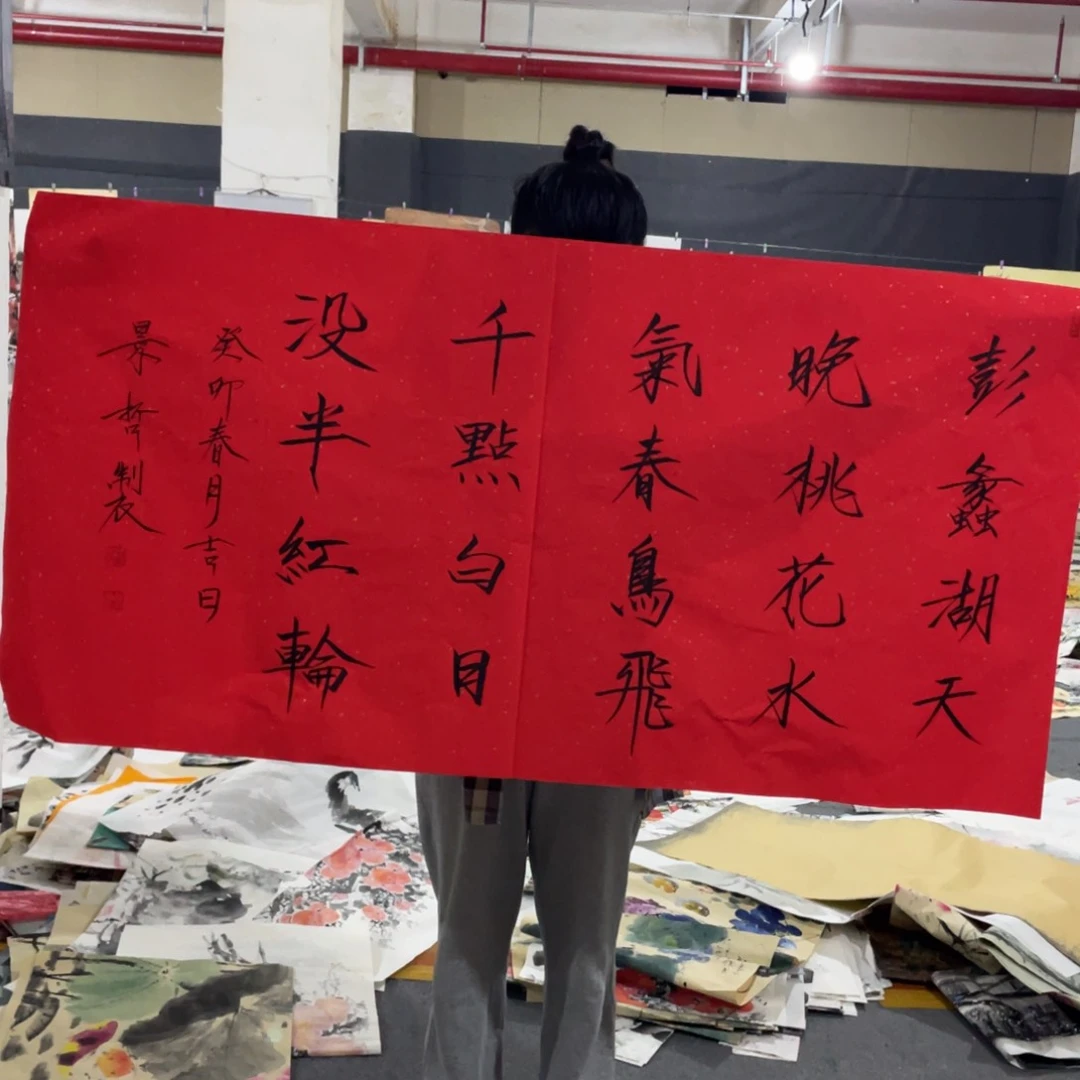 彭蠡湖天
晚桃花水
氣春鳥飛
千點白日
没半紅輪
癸卯春月吉日
景哲製